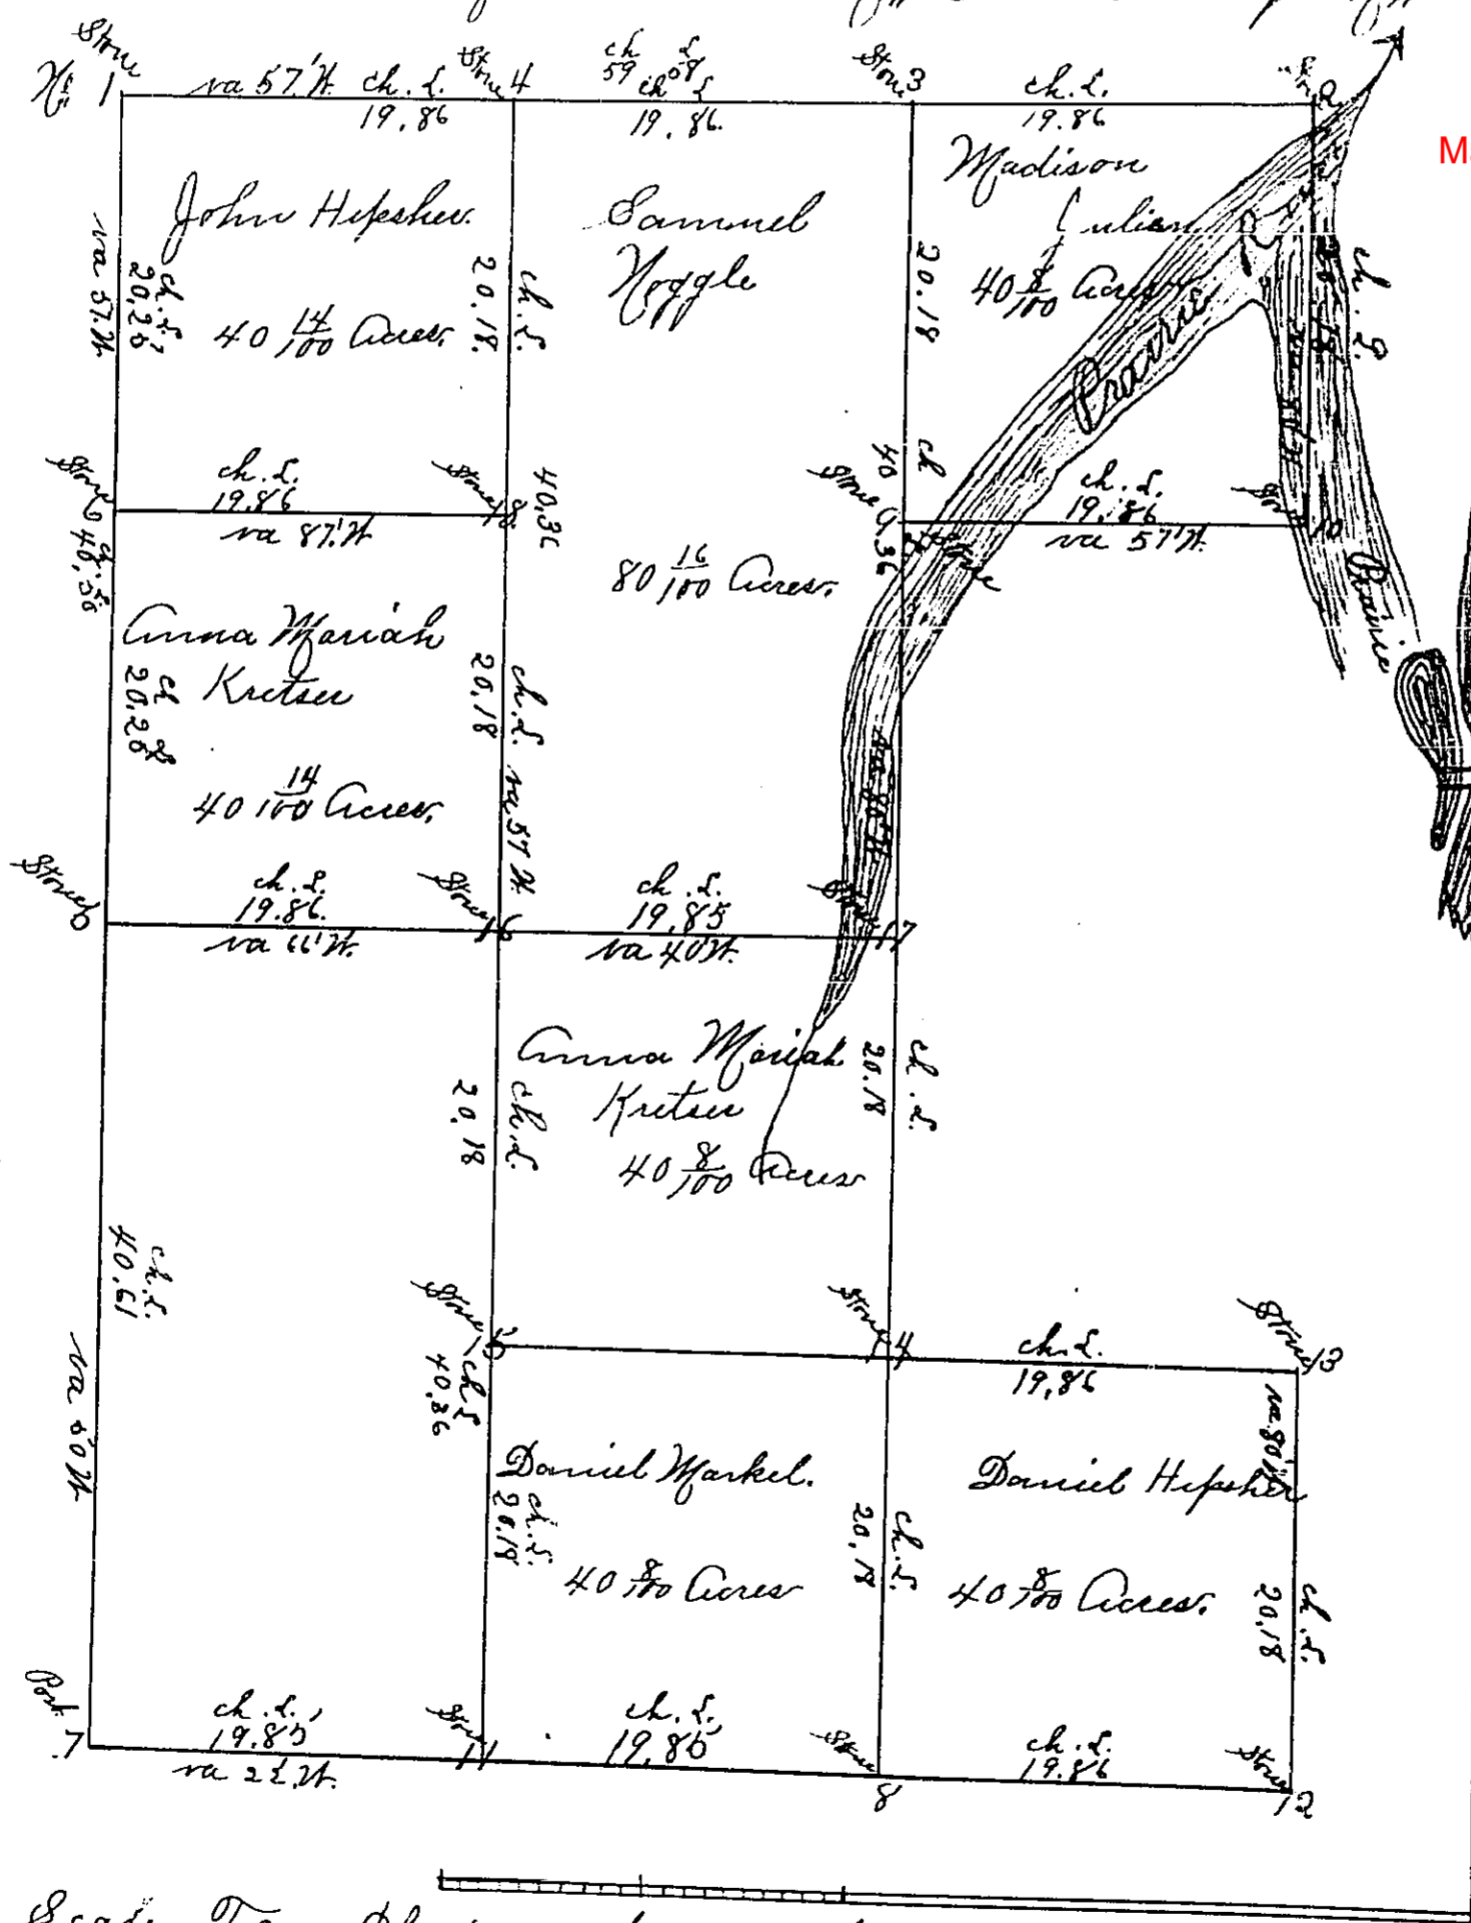 Stone
No. 1
va 57' W.
ch. L.
19.86
Stone 4
ch L
59 08
ch L
19.86.
Stone 3
ch. L.
19.86
2
John Hipsher.
40 14/100 Acres.
va 57. W.
ch. L.
20,28
ch. L.
20,18.
Samuel
Noggle
80 16/100 Acres.
Madison
Julien
40 8/100 Acres
20.18
Prairie
ch. L.
20.18
Stone
ch. L.
19.86
va 87' W.
Stone 18
40,36
ch
40
36
Stone 9
Stone
ch. L.
19.86
va 57' W.
10
Prairie
Anna Mariah
Kretser
40 14/100 Acres.
ch L
20,28
ch. L.
20,18
va 57 W.
Stone 6
ch. L.
19.86.
va 66' W.
Stone 16
ch. L.
19,85
va 40' W.
Stone 17
Anna Moriah
Kretser
40 8/100 Acres
ch. L.
20,18
ch. L.
20.18
ch. L.
40,61
va 80 W
Stone 15
ch L
40,36
Stone 14
ch. L.
19,86
Stone 13
va 80' W
Daniel Markel.
40 8/100 Acres
ch. L.
20.18
ch. L.
20,18
Daniel Hipsher
40 8/100 Acres.
ch. L.
20,18
Post.
7
ch. L.,
19.85
Stone
11
ch. L.,
19.86
Stone
8
ch. L.
19.86
Stone
12
Ma